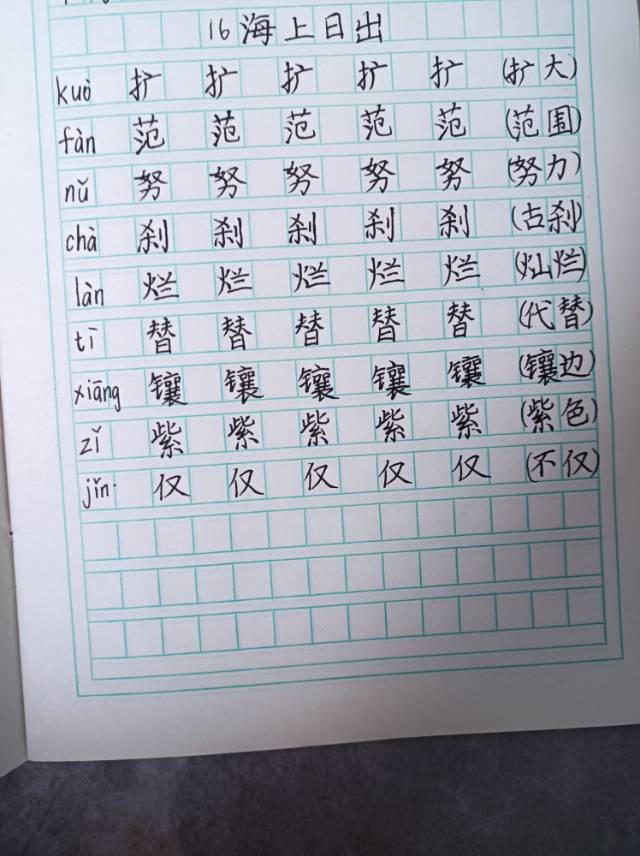 16 海上日出
kuò 扩 扩 扩 扩 扩 (扩大)
fàn 范 范 范 范 范 (范围)
nǔ 努 努 努 努 努 (努力)
chà 刹 刹 刹 刹 刹 (古刹)
làn 烂 烂 烂 烂 烂 (灿烂)
tī 替 替 替 替 替 (代替)
xiāng 镶 镶 镶 镶 镶 (镶边)
zǐ 紫 紫 紫 紫 紫 (紫色)
jǐn 仅 仅 仅 仅 仅 (不仅)